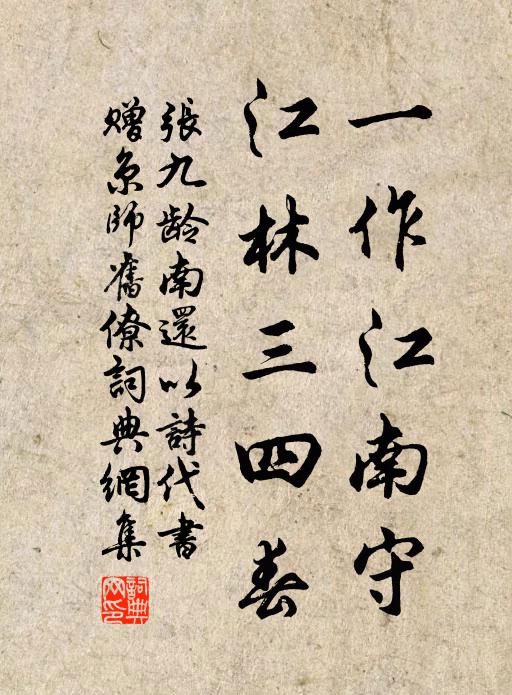 一作江南守
江林三四春
張九齡南還以詩代書
贈京師舊僚詞典網集
詞典
網印